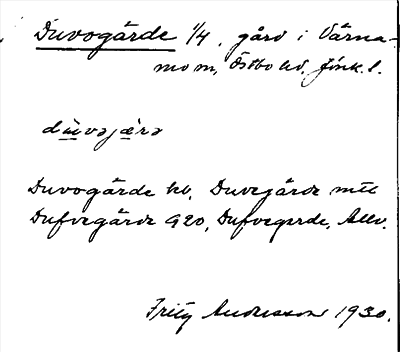 Duvogärde 1/4. gård i Värna-
mo m, Östbo hd. Jönk. l.
dùvəjæ̀rə
Duvogärde kb, Duvegärde mtl
Dufvegärde G20, Dufvegerde, Allv.
Fritz Andersson 1930.